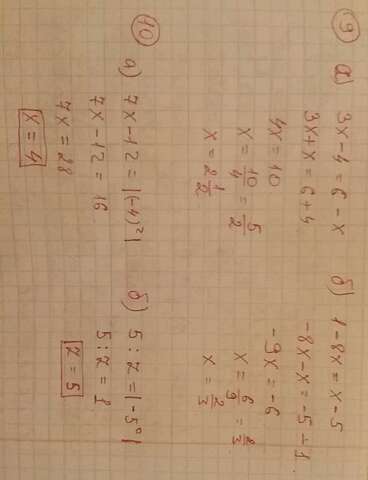 9
а) 3x-4=6-x
3x+x=6+4
4x=10
x=10/4=5/2
x=2 1/2
б) 1-8x=x-5
-8x-x=-5-1
-9x=-6
x=6/9=2/3
x=2/3
10
а) 7x-12=|(-4)²|
7x-12=16
7x=28
x=4
б) 5:z=|-5⁰|
5:z=1
z=5